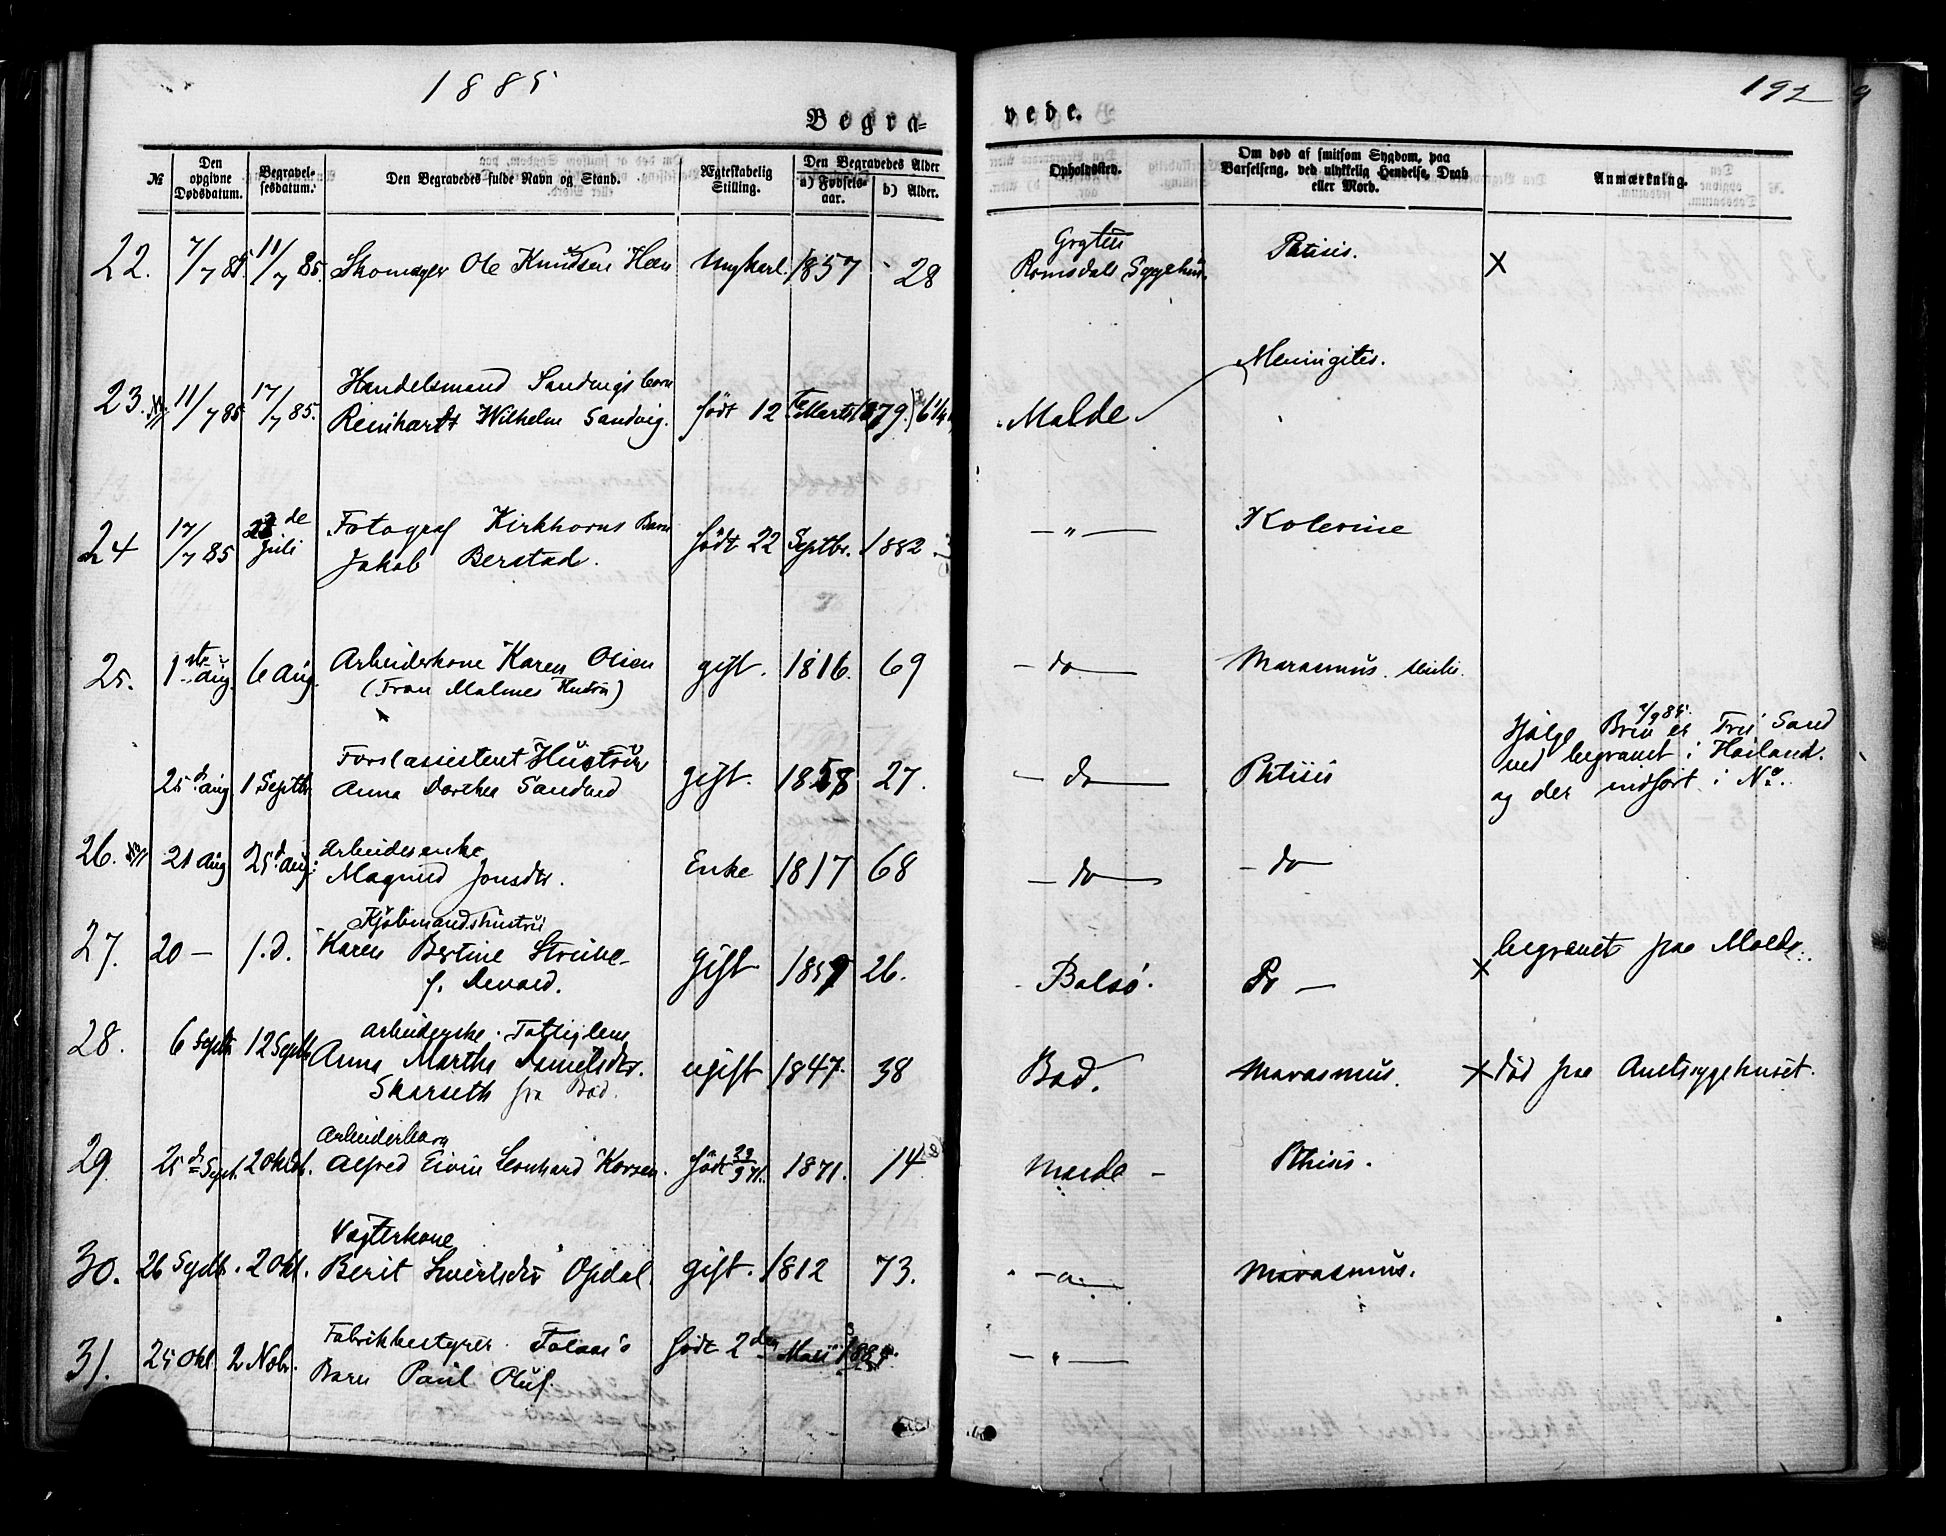 1885
192
Begra-
vede.
№
Den opgivne Dødsdatum.
Begravel-sesdatum.
Den Begravedes fulde Navn og Stand.
Ægteskabelig Stilling.
Den Begravedes Alder
a) Fødsels-aar.
b) Alder.
Opholdssted.
Om død af smitsom Sygdom, paa Barselseng, ved ulykkelig Hendelse, Drab eller Mord.
Anmærkning.
22. 7/7 85 11/7 85. Skomager Ole Knudsen Ungkarl. 1857 28
Romsdals Sygehus. Phtisis. X
23. 11/7 85 17/7 85. Handelsmand Sandvigs barn
Reinhardt Wilhelm Sandvig. født 12 Marts 1879. 6 1/4
Molde Meningites.
24 17/7 85 Juli Fotograf Kirkhorns Barn
Jakob Berstad. født 22 Septbr. 1882
— " — Kolerine
25. 1ste Aug. 6 Aug. Arbeiderkone Karen Olsen
(Tron Malmes Hustru) gift. 1816. 69
— do — Marasmus senilis.
25 d Aug. 1 Septbr. Hustru
Anna Dorthea Sandved gift. 1858 27.
— do — Phtisis
7/9 85.
ved begravet i
og der indført i No.
26. 21 Aug 25 d Aug. Arbeidsenke
Magnild Jonsdtr. Enke 1817 68
— do — — do
27. 20 — 1. d. Kjøbmandshustru
Karen Bertine
f. gift 1859 26.
Bolsø. Do — X begravet paa Molde.
28. 6 Septbr 12 Septbr
Anna Martha Danielsdtr.
Skarseth fra Bod. ugift 1847. 38
Bod. Marasmus. X død paa Amtssygehuset.
29. 25 d Sept. 2 Oktbr. Arbeiderbarn
Alfred Eivin Leonhard født 1871. 14
Molde — Phtisis.
30. 26 Septb. 2 Okt. Vægterkone
Berit Sivertsdtr Opdal. gift. 1812 73.
Marasmus.
31. 25 Okt. 2 Novbr. Fabrikbestyrer
Barn Paul Oluf. født 2den Mai
— " —